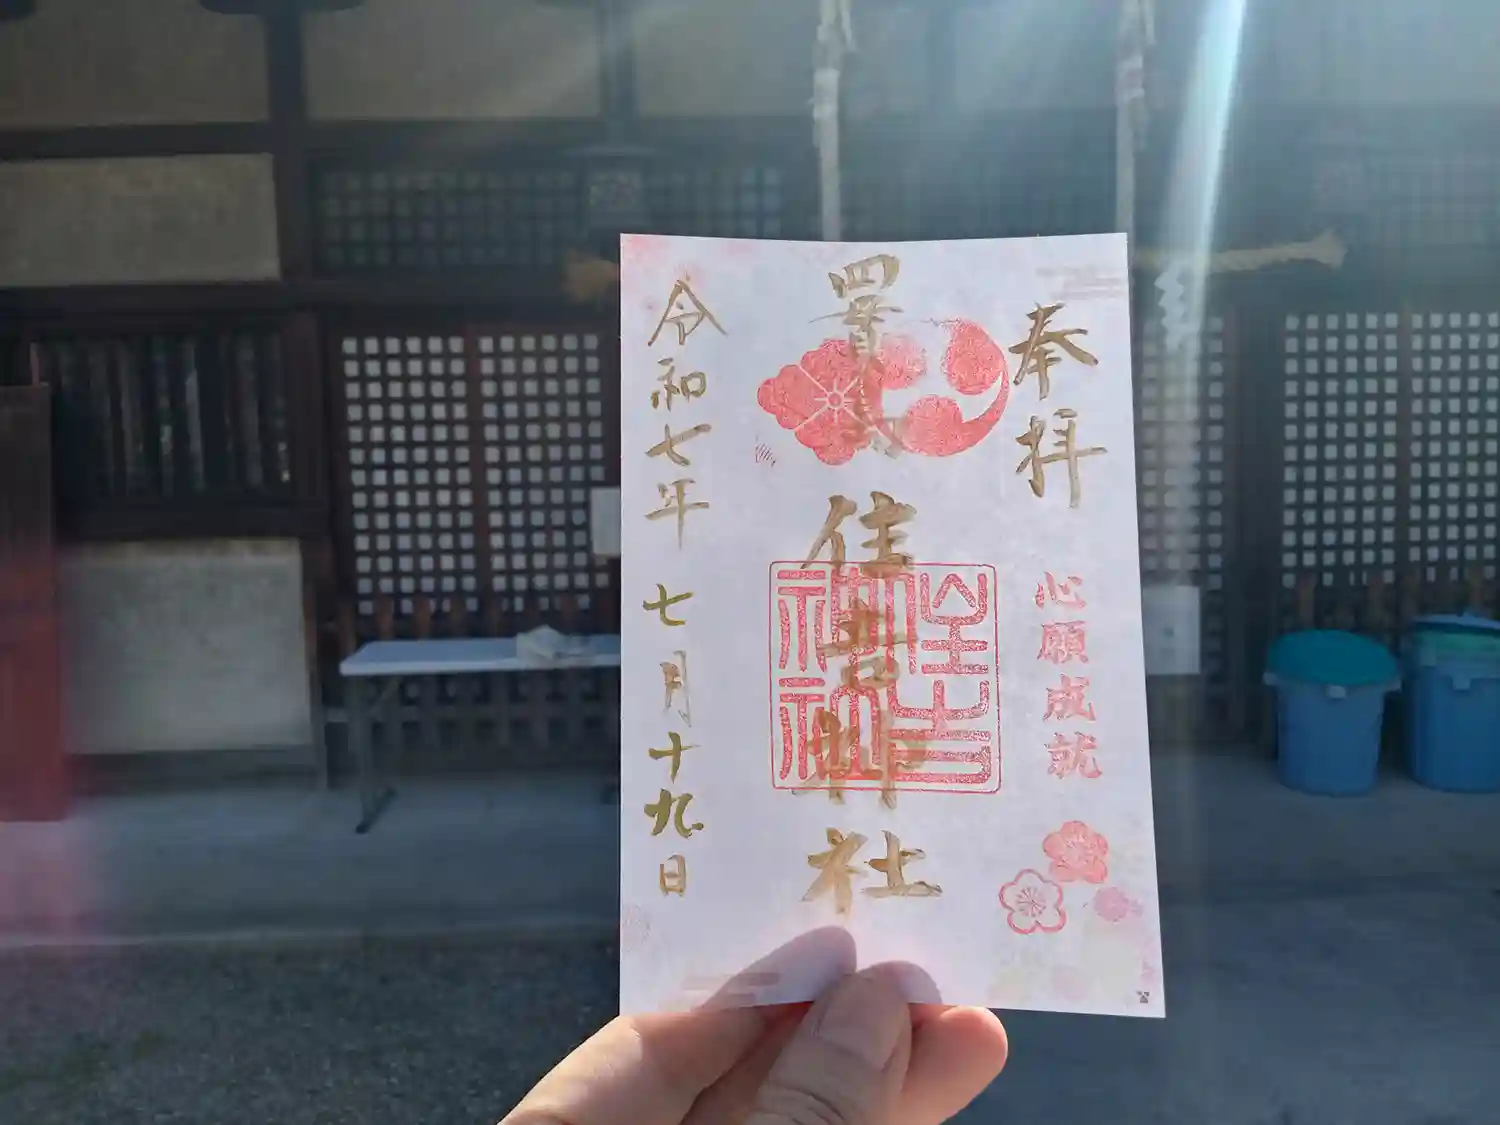 奉拝
心願成就
四貫島
住吉神社
住吉
神社
令和七年七月十九日